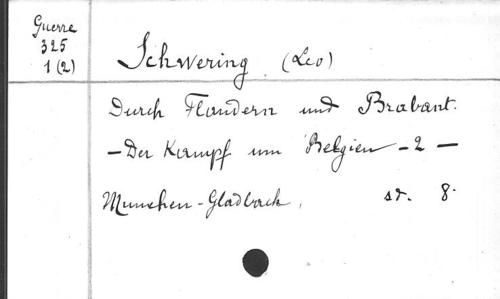 Guerre
325
1 (2)
Schwering (Leo)
Durch Flandern und Brabant.
— Der Kampf um Belgien — 2 —
Munchen-Gladbach, sd. 8.